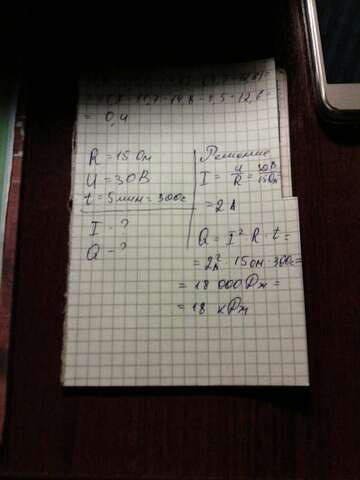 = 0,4
R = 15 Ом
U = 30В
t = 5 мин = 300с
I - ?
Q - ?
Решение
I = U/R = 30В/15Ом =
= 2 А
Q = I² R · t =
= 2А² · 15 Ом · 300с =
= 18 000 Дж =
= 18 кДж